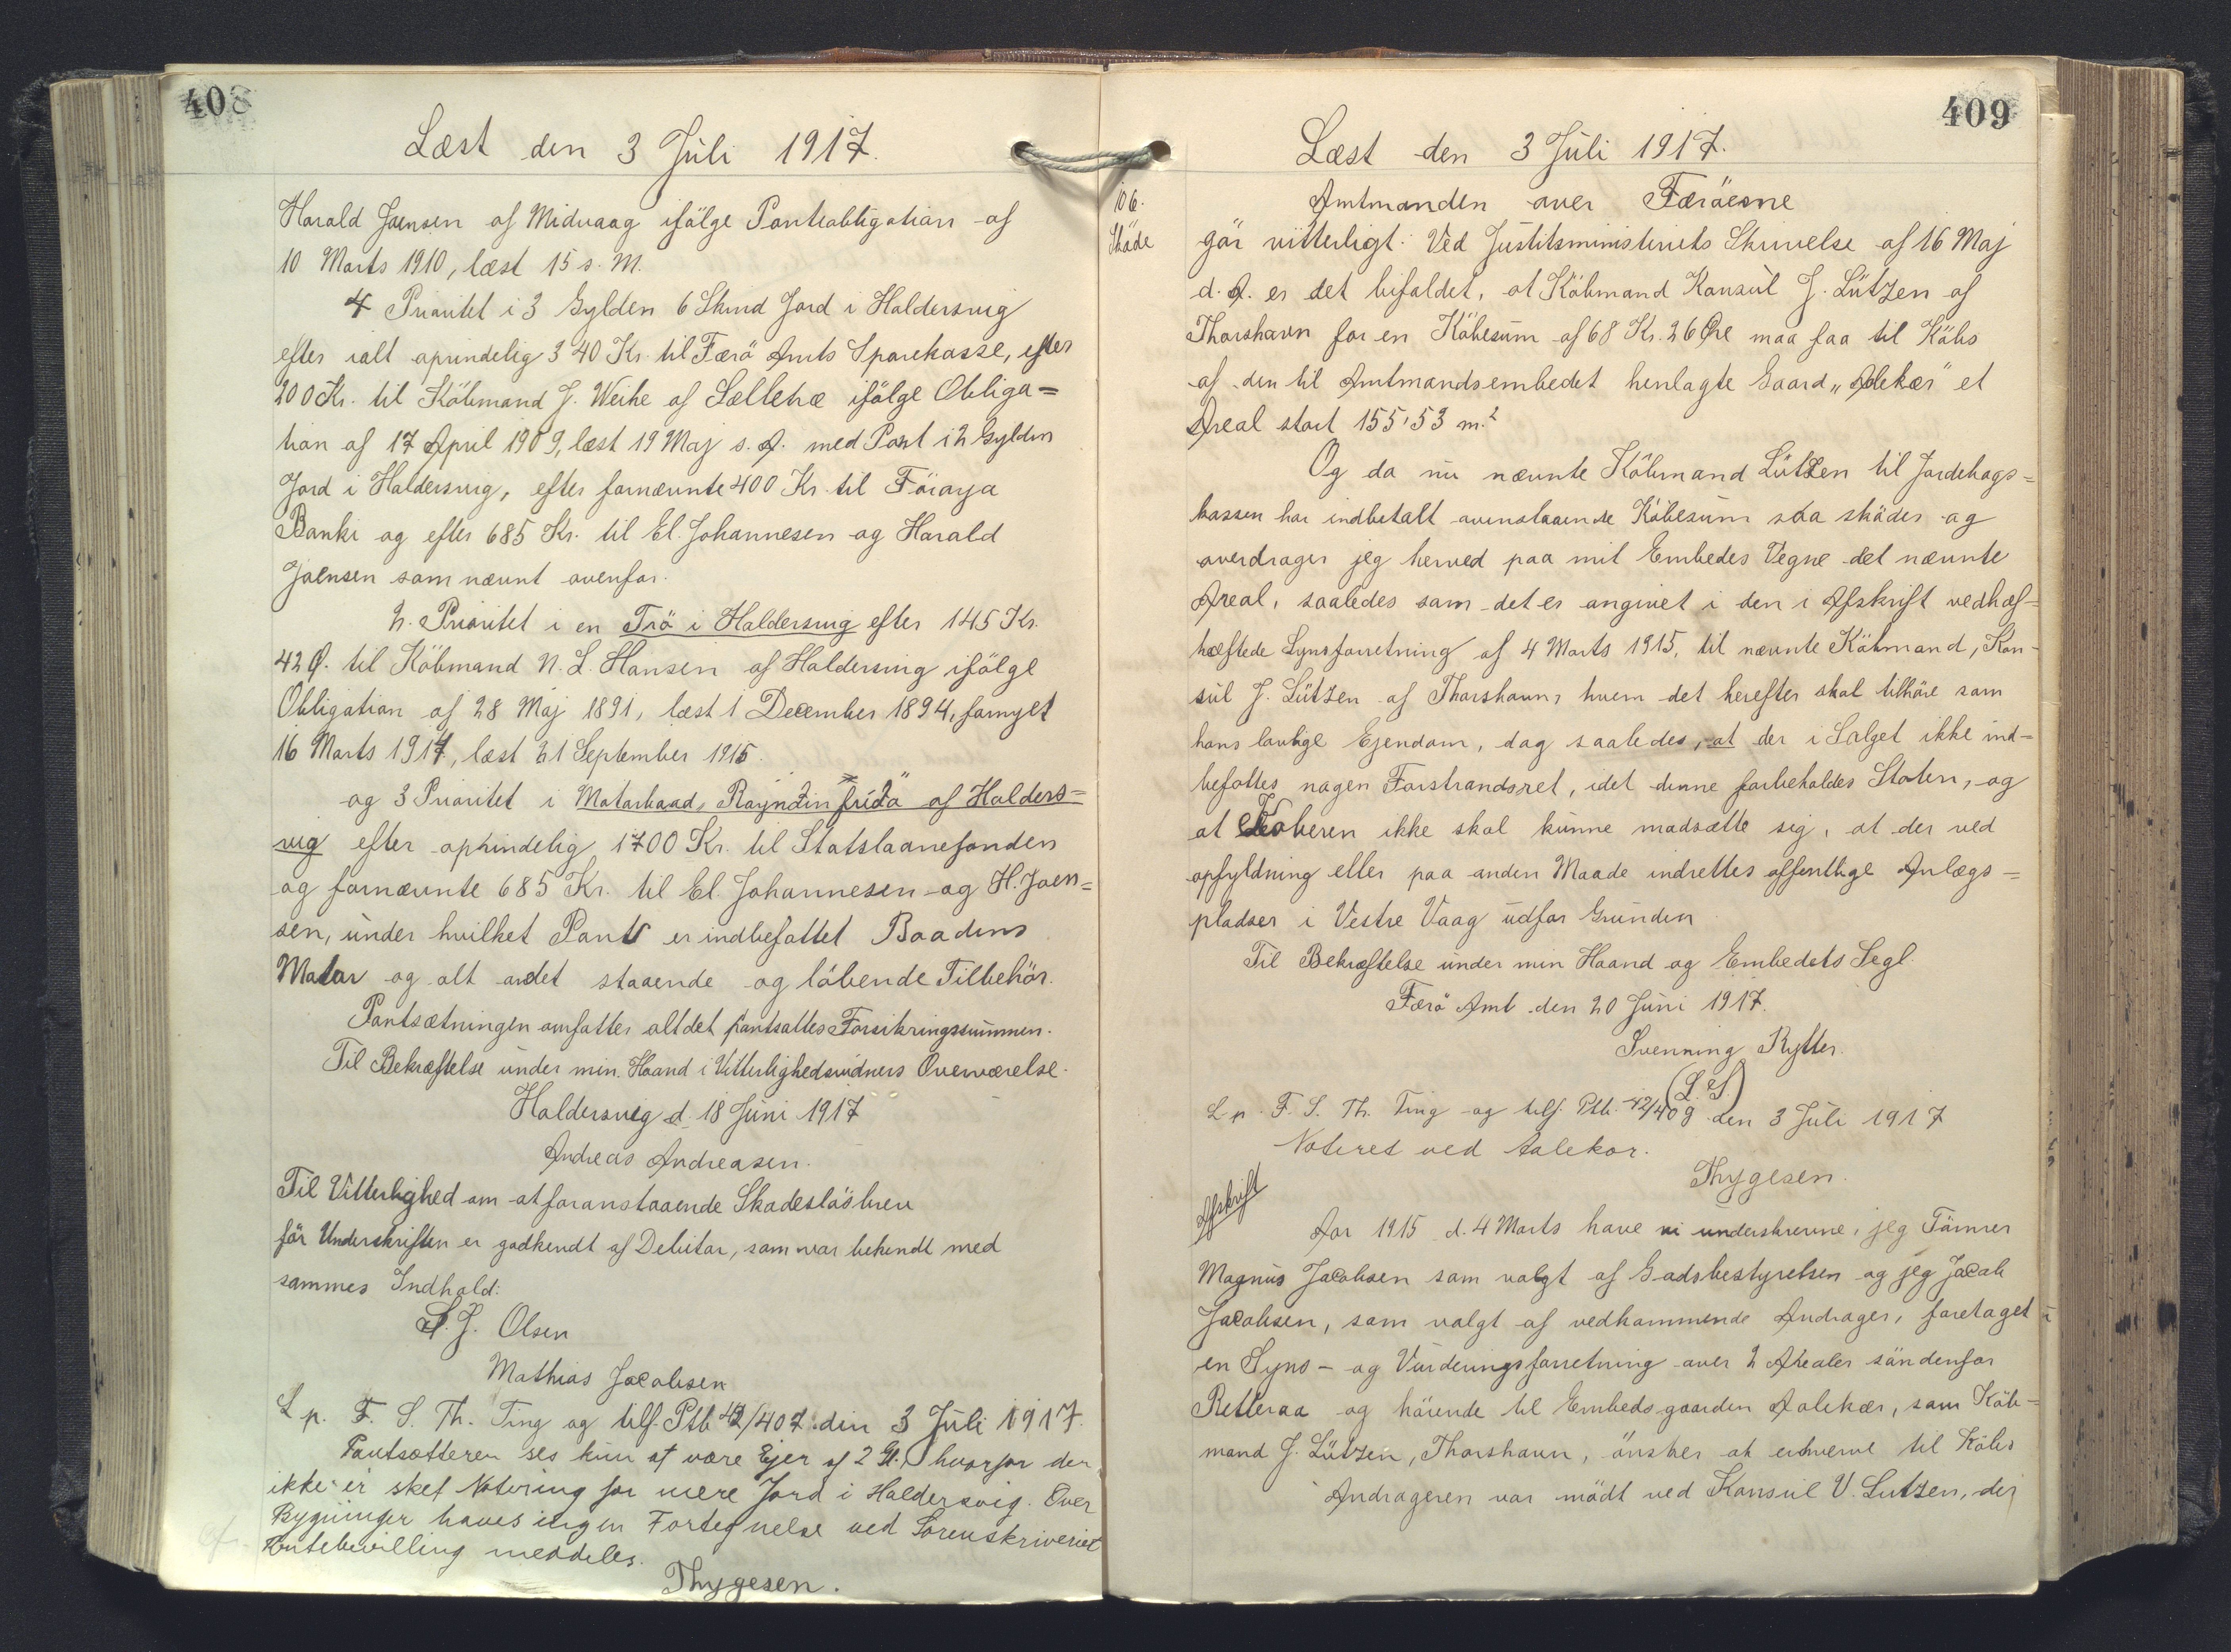 408
Læst den 3 Juli 1917.
Harald Joensen af Midvaag ifölge Panteobligation af
10 Marts 1910, læst 15 s. M.
4 Prioritet i 3 Gylden 6 Skind Jord i Haldersvig
efter ialt oprindelig 340 Kr. til Færö Amts Sparekasse, efter
200 Kr. til Köbmand J. Weihe af Selletræ ifölge Obliga=
tion af 17 April 1909, læst 19 Maj s. A. med Pant i 2 Gylden
Jord i Haldersvig, efter fornævnte 400 Kr. til Föroya
Banki og efter 685 Kr. til El. Johannesen og Harald
Joensen som nævnt ovenfor.
2. Prioritet i en Trö i Haldersvig efter 145 Kr.
42 Ø. til Köbmand N. L. Hansen af Haldersvig ifölge
Obligation af 28 Maj 1891, læst 1 December 1894, fornyet
16 Marts 1914, læst 21 September 1915.
og 3 Prioritet i Motorbaad „Royndin frída" af Halders=
vig efter oprindelig 1700 Kr. til Statslaanefonden
og fornævnte 685 Kr. til El. Johannesen og H. Joen=
sen, under hvilket Pant er indbefattet Baadens
Motor og alt andet staaende og löbende Tilbehör.
Pantsætningen omfatter alt det pantsattes Forsikringssummen.
Til Bekræftelse under min Haand i Vitterlighedsvidners Overværelse.
Haldersvig d. 18 Juni 1917
Andreas Andreasen.
Til Vitterlighed om at foranstaaende Skadeslösbrev
för Underskriften er godkendt af Debitor, som var bekendt med
sammes Indhold:
S. J. Olsen
Mathias Jacobsen
L p. F. S. Th. Ting og tilf. Ptb 42/407 den 3 Juli 1917.
Pantsætteren ses kun at være Ejer af 2 Gl., hvorfor der
ikke er sket Notering for mere Jord i Haldersvig. Over
Bygninger haves ingen Fortegnelse ved Sorenskriveriet
Rentebevilling meddeles.
Thygesen.
409
Læst den 3 Juli 1917.
106.
Skøde
Amtmanden over Færöerne
gör vitterligt: Ved Justitsministeriets Skrivelse af 16 Maj
d. A. er det bifaldet, at Köbmand Konsul J. Lützen af
Thorshavn for en Köbesum af 68 Kr. 26 Øre maa faa til Köbs
af den til Amtmandsembedet henlagte Gaard „Aalekær" et
Areal stort 155,53 m.2
Og da nu nævnte Köbmand Lützen til Jordebogs=
kassen har indbetalt ovenstaaende Köbesum saa sköder og
overdrager jeg herved paa mit Embedes Vegne det nævnte
Areal, saaledes som det er angivet i den i Afskrift vedhæf=
hæftede Synsforretning af 4 Marts 1915, til nævnte Köbmand, Kon-
sul J. Lützen af Thorshavn, hvem det herefter skal tilhöre som
hans lovlige Ejendom, dog saaledes, at der i Salget ikke ind=
befattes nogen Forstrandsret, idet denne forbeholdes Staten, og
at Köberen ikke skal kunne modsætte sig, at der ved
opfyldning eller paa anden Maade indrettes offentlige Anlægs=
pladser i Vestre Vaag udfor Grunden
Til Bekræftelse under min Haand og Embedets Segl.
Færö Amt den 20 Juni 1917.
Svenning Rytter.
(L. S.)
L p. F. S. Th. Ting og tilf. Ptb. 42/409 den 3 Juli 1917
Noteret ved Aalekær.
Thygesen.
Afskrift
Aar 1915 d. 4 Marts have vi underskrevne, jeg Tömrer
Magnus Jacobsen som valgt af Godsbestyrelsen og jeg Jacob
Jacobsen, som valgt af vedkommende Andrager, foretaget
en Syns- og Vurderingsforretning over 2 Arealer söndenfor
Retteraa og hörende til Embedsgaarden Aalekær, som Köb=
mand J. Lützen, Thorshavn, önsker at erhverve til Köbs
Andrageren var mödt ved Konsul V. Lutzen, der